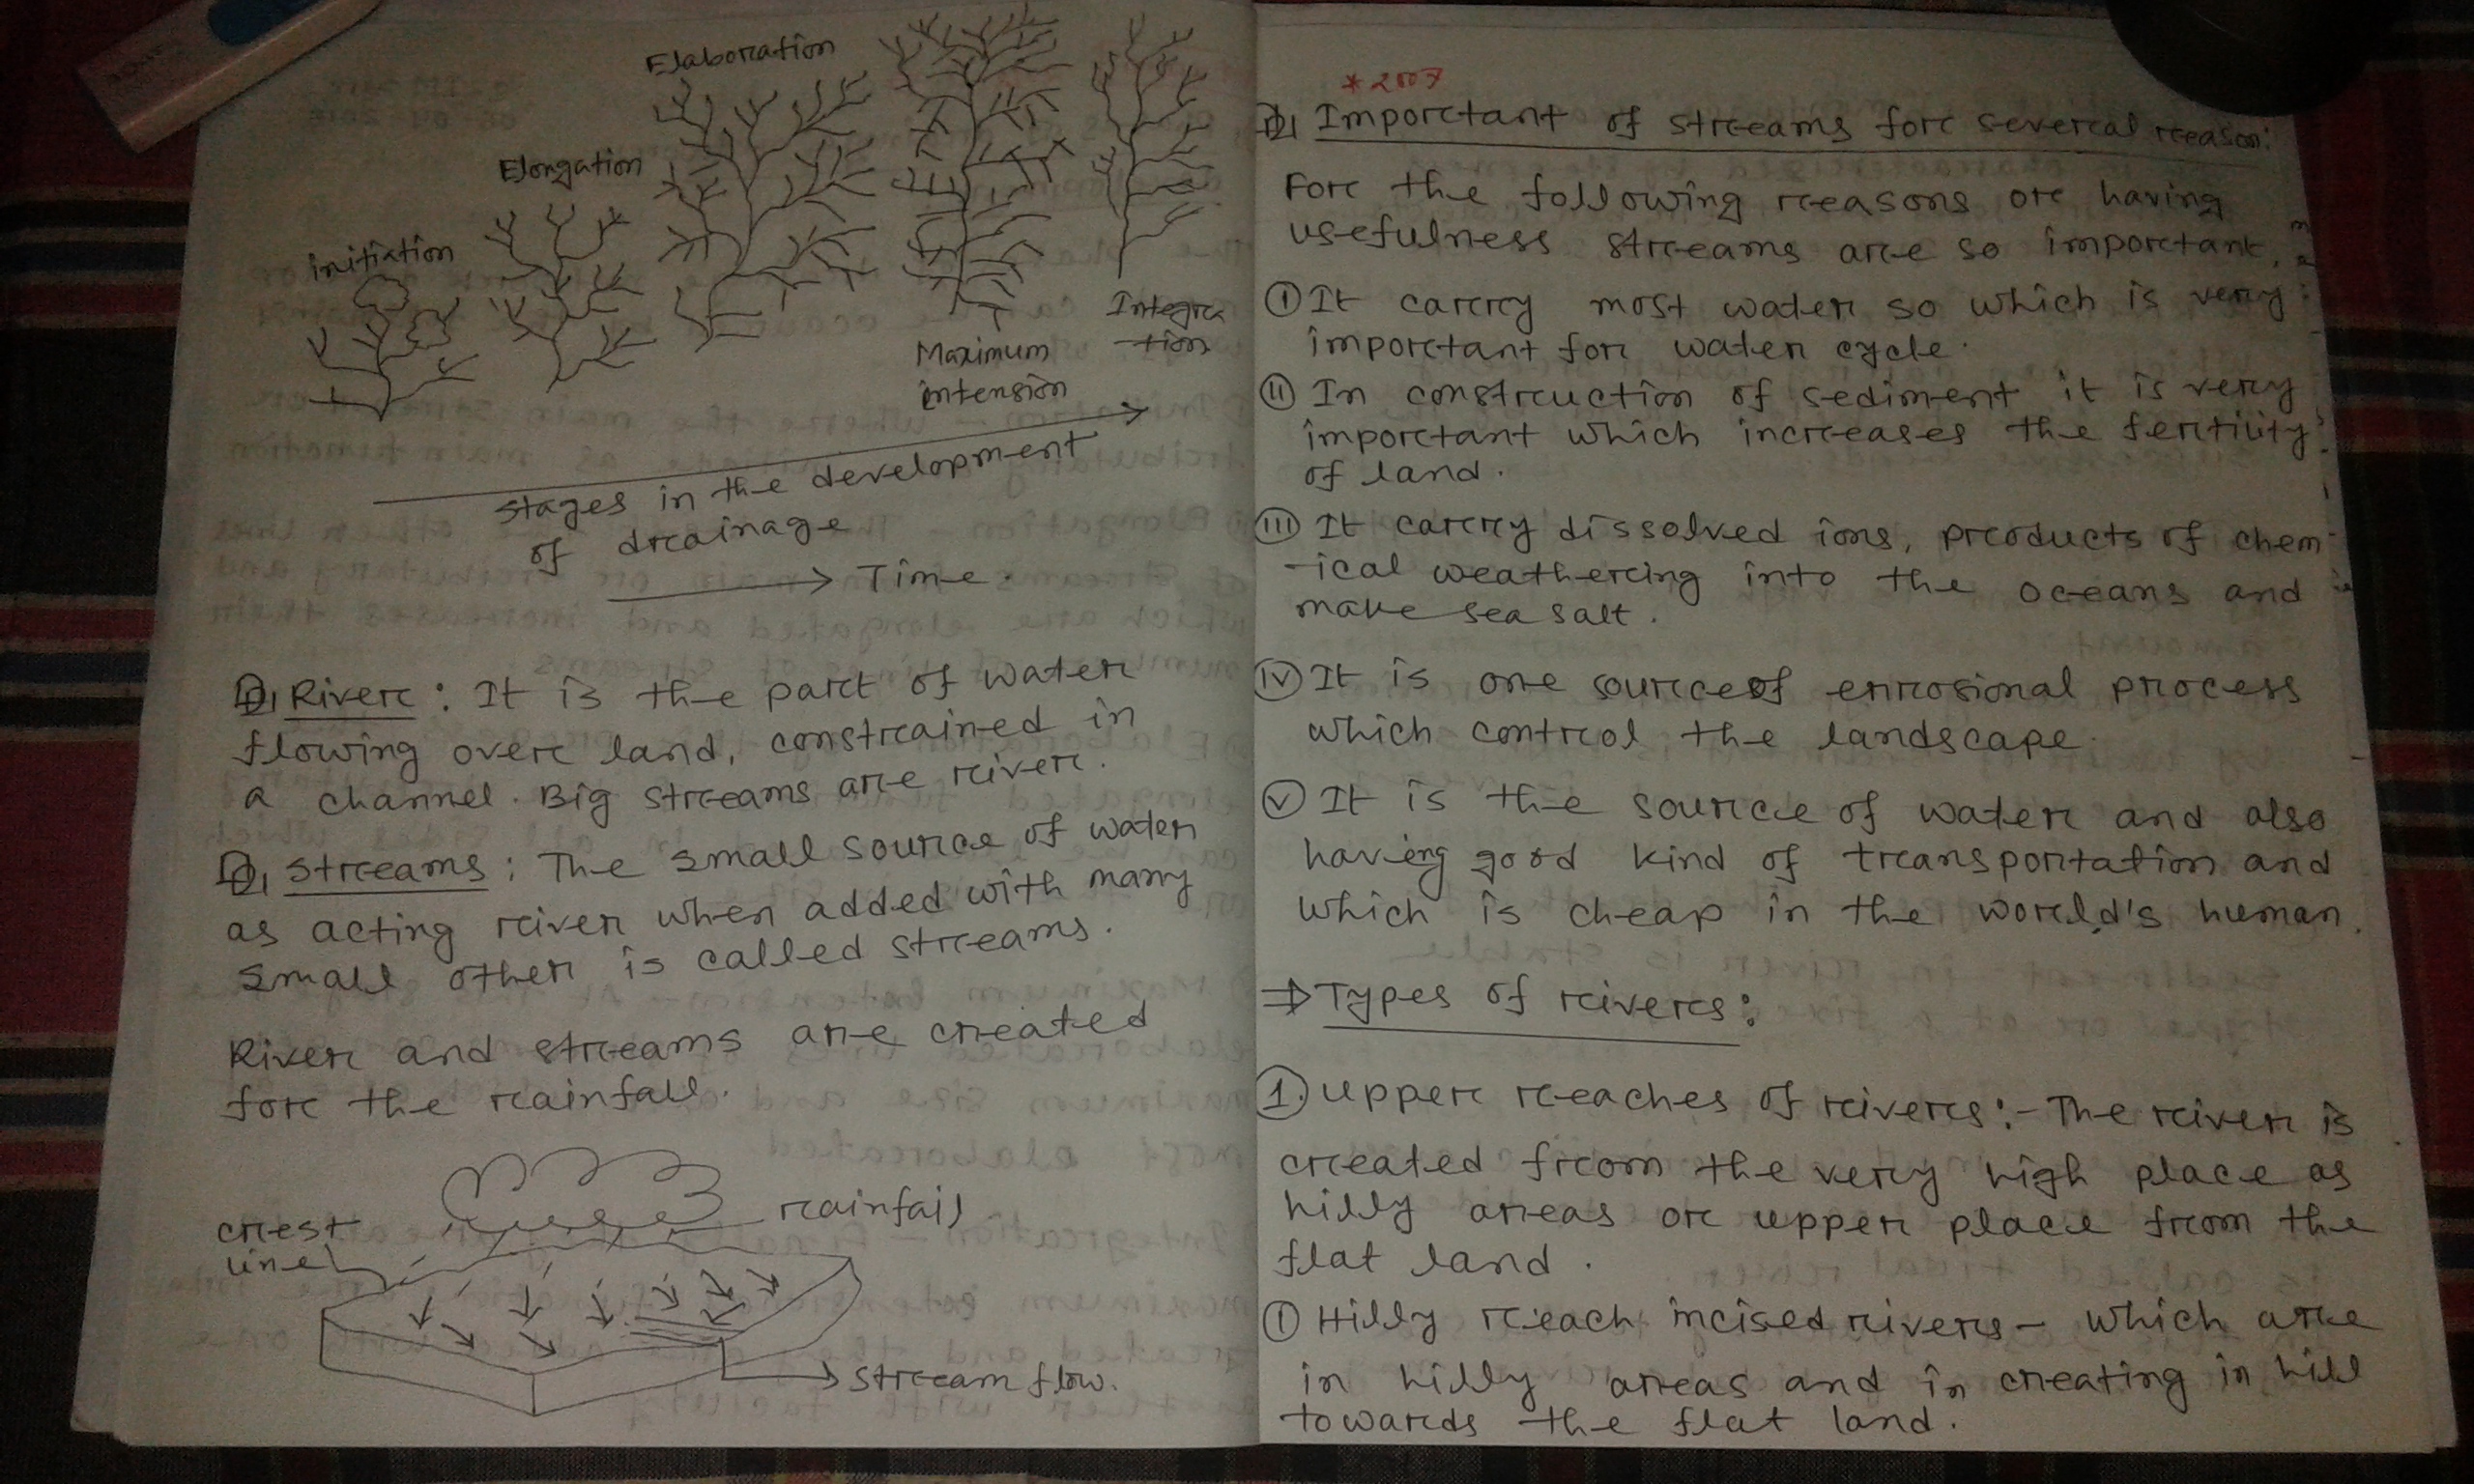 Elaboration
Elongation
initiation
Maximum
intension
Integra
-tion
stages in the development
of drainage
Time.
River: It is the part of water
flowing over land, constrained in
a channel. Big streams are river.
Streams: The small source of water
as acting river when added with many
small other is called streams.
River and streams are created
for the rainfall.
rainfall
crest
line
stream flow.
*2007
Important of streams for several reason:
For the following reasons or having
usefulness streams are so important.
(i) It carry most water so which is very
important for water cycle.
(ii) In construction of sediment it is very
important which increases the fertility
of land.
(iii) It carry dissolved ions, products of chem
-ical weathering into the oceans and
make sea salt.
(iv) It is one source of errosional process
which control the landscape.
(v) It is the source of water and also
having good kind of transportation and
which is cheap in the world's human.
⇒ Types of rivers:
1. Upper reaches of rivers:- The river is
created from the very high place as
hilly areas or upper place from the
flat land.
(i) Hilly reach incised rivers - which are
in hilly areas and in creating in hill
towards the flat land.